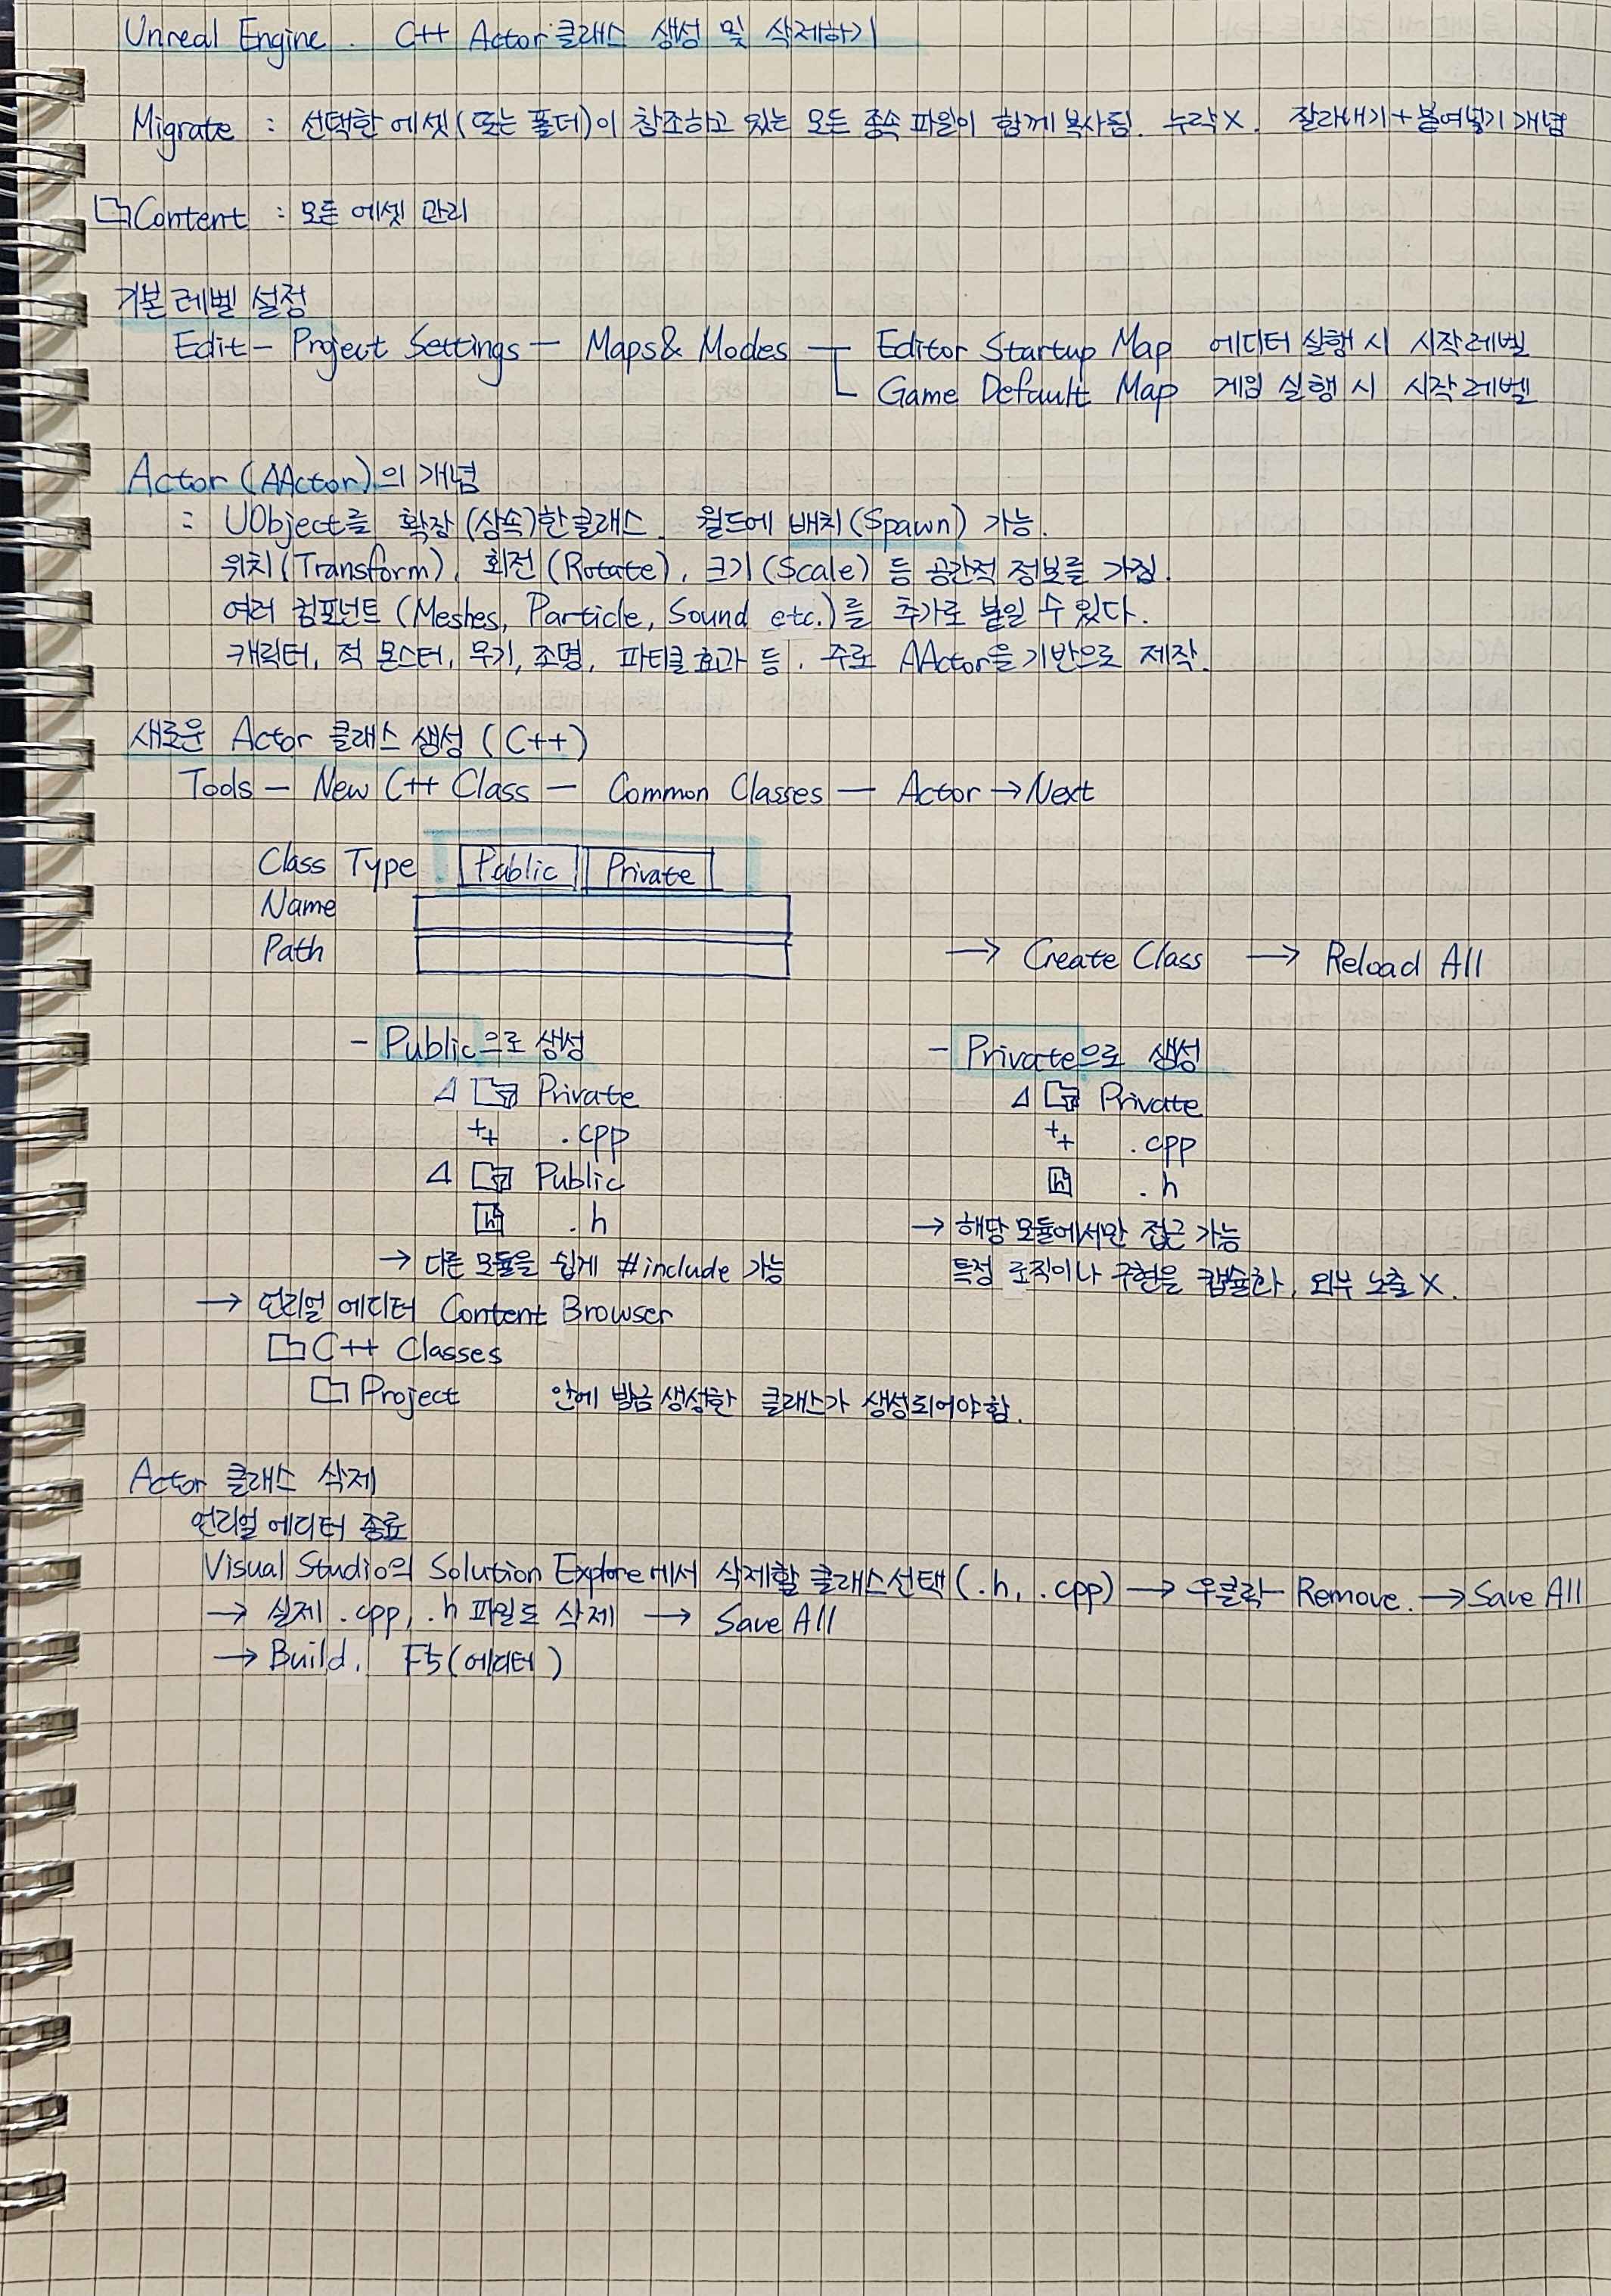 Unreal Engine. C++ Actor 클래스 생성 및 삭제하기
Migrate : 선택한 에셋(또는 폴더)이 참조하고 있는 모든 종속 파일이 함께 복사됨. 누락X. 잘라내기+붙여넣기 개념
Content : 모든 에셋 관리
기본 레벨 설정
Edit - Project Settings - Maps & Modes - Editor Startup Map 에디터 실행 시 시작 레벨
Game Default Map 게임 실행 시 시작 레벨
Actor (AActor)의 개념
: UObject를 확장(상속)한 클래스. 월드에 배치(Spawn) 가능.
위치(Transform), 회전(Rotate), 크기(Scale) 등 공간적 정보를 가짐.
여러 컴포넌트 (Meshes, Particle, Sound etc.)를 추가로 붙일 수 있다.
캐릭터, 적 몬스터, 무기, 조명, 파티클 효과 등, 주로 AActor을 기반으로 제작.
새로운 Actor 클래스 생성 (C++)
Tools - New C++ Class - Common Classes - Actor → Next
Class Type Public Private
Name
Path → Create Class → Reload All
- Public으로 생성
Private
++ .cpp
Public
h .h
→ 다른 모듈을 쉽게 #include 가능
- Private으로 생성
Private
++ .cpp
h .h
→ 해당 모듈에서만 접근 가능
특정 로직이나 구현을 캡슐화, 외부 노출 X.
→ 언리얼 에디터 Content Browser
C++ Classes
Project 안에 방금 생성한 클래스가 생성되어야 함.
Actor 클래스 삭제
언리얼 에디터 종료
Visual Studio의 Solution Explore에서 삭제할 클래스 선택 (.h, .cpp) → 우클릭 - Remove. → Save All
→ 실제 .cpp, .h 파일도 삭제 → Save All
→ Build, F5(에디터)